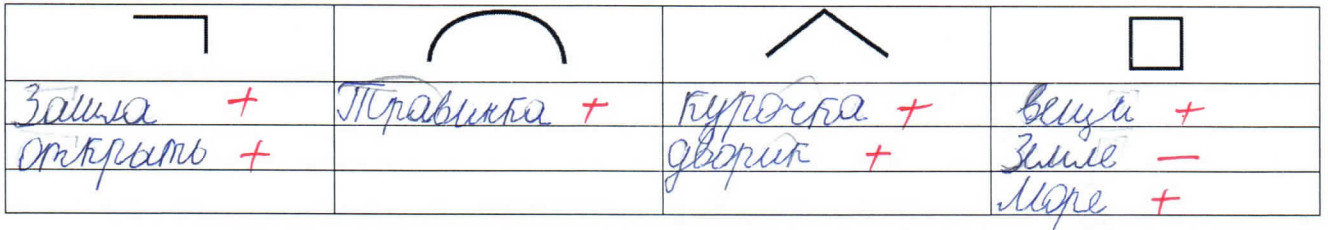 Зашла + Травинка + курочка + вещи +
открыть + дворик + Земле —
Море +